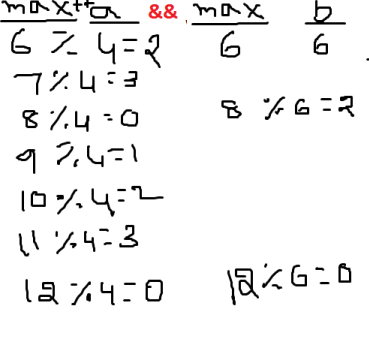 max++ a && max b
6 % 4=2 6 6
7 % 4=3
8 %4 =0 8 % 6 =2
9 %4=1
10 %4=2
11 %4=3
12 %4=0 12 % 6=0